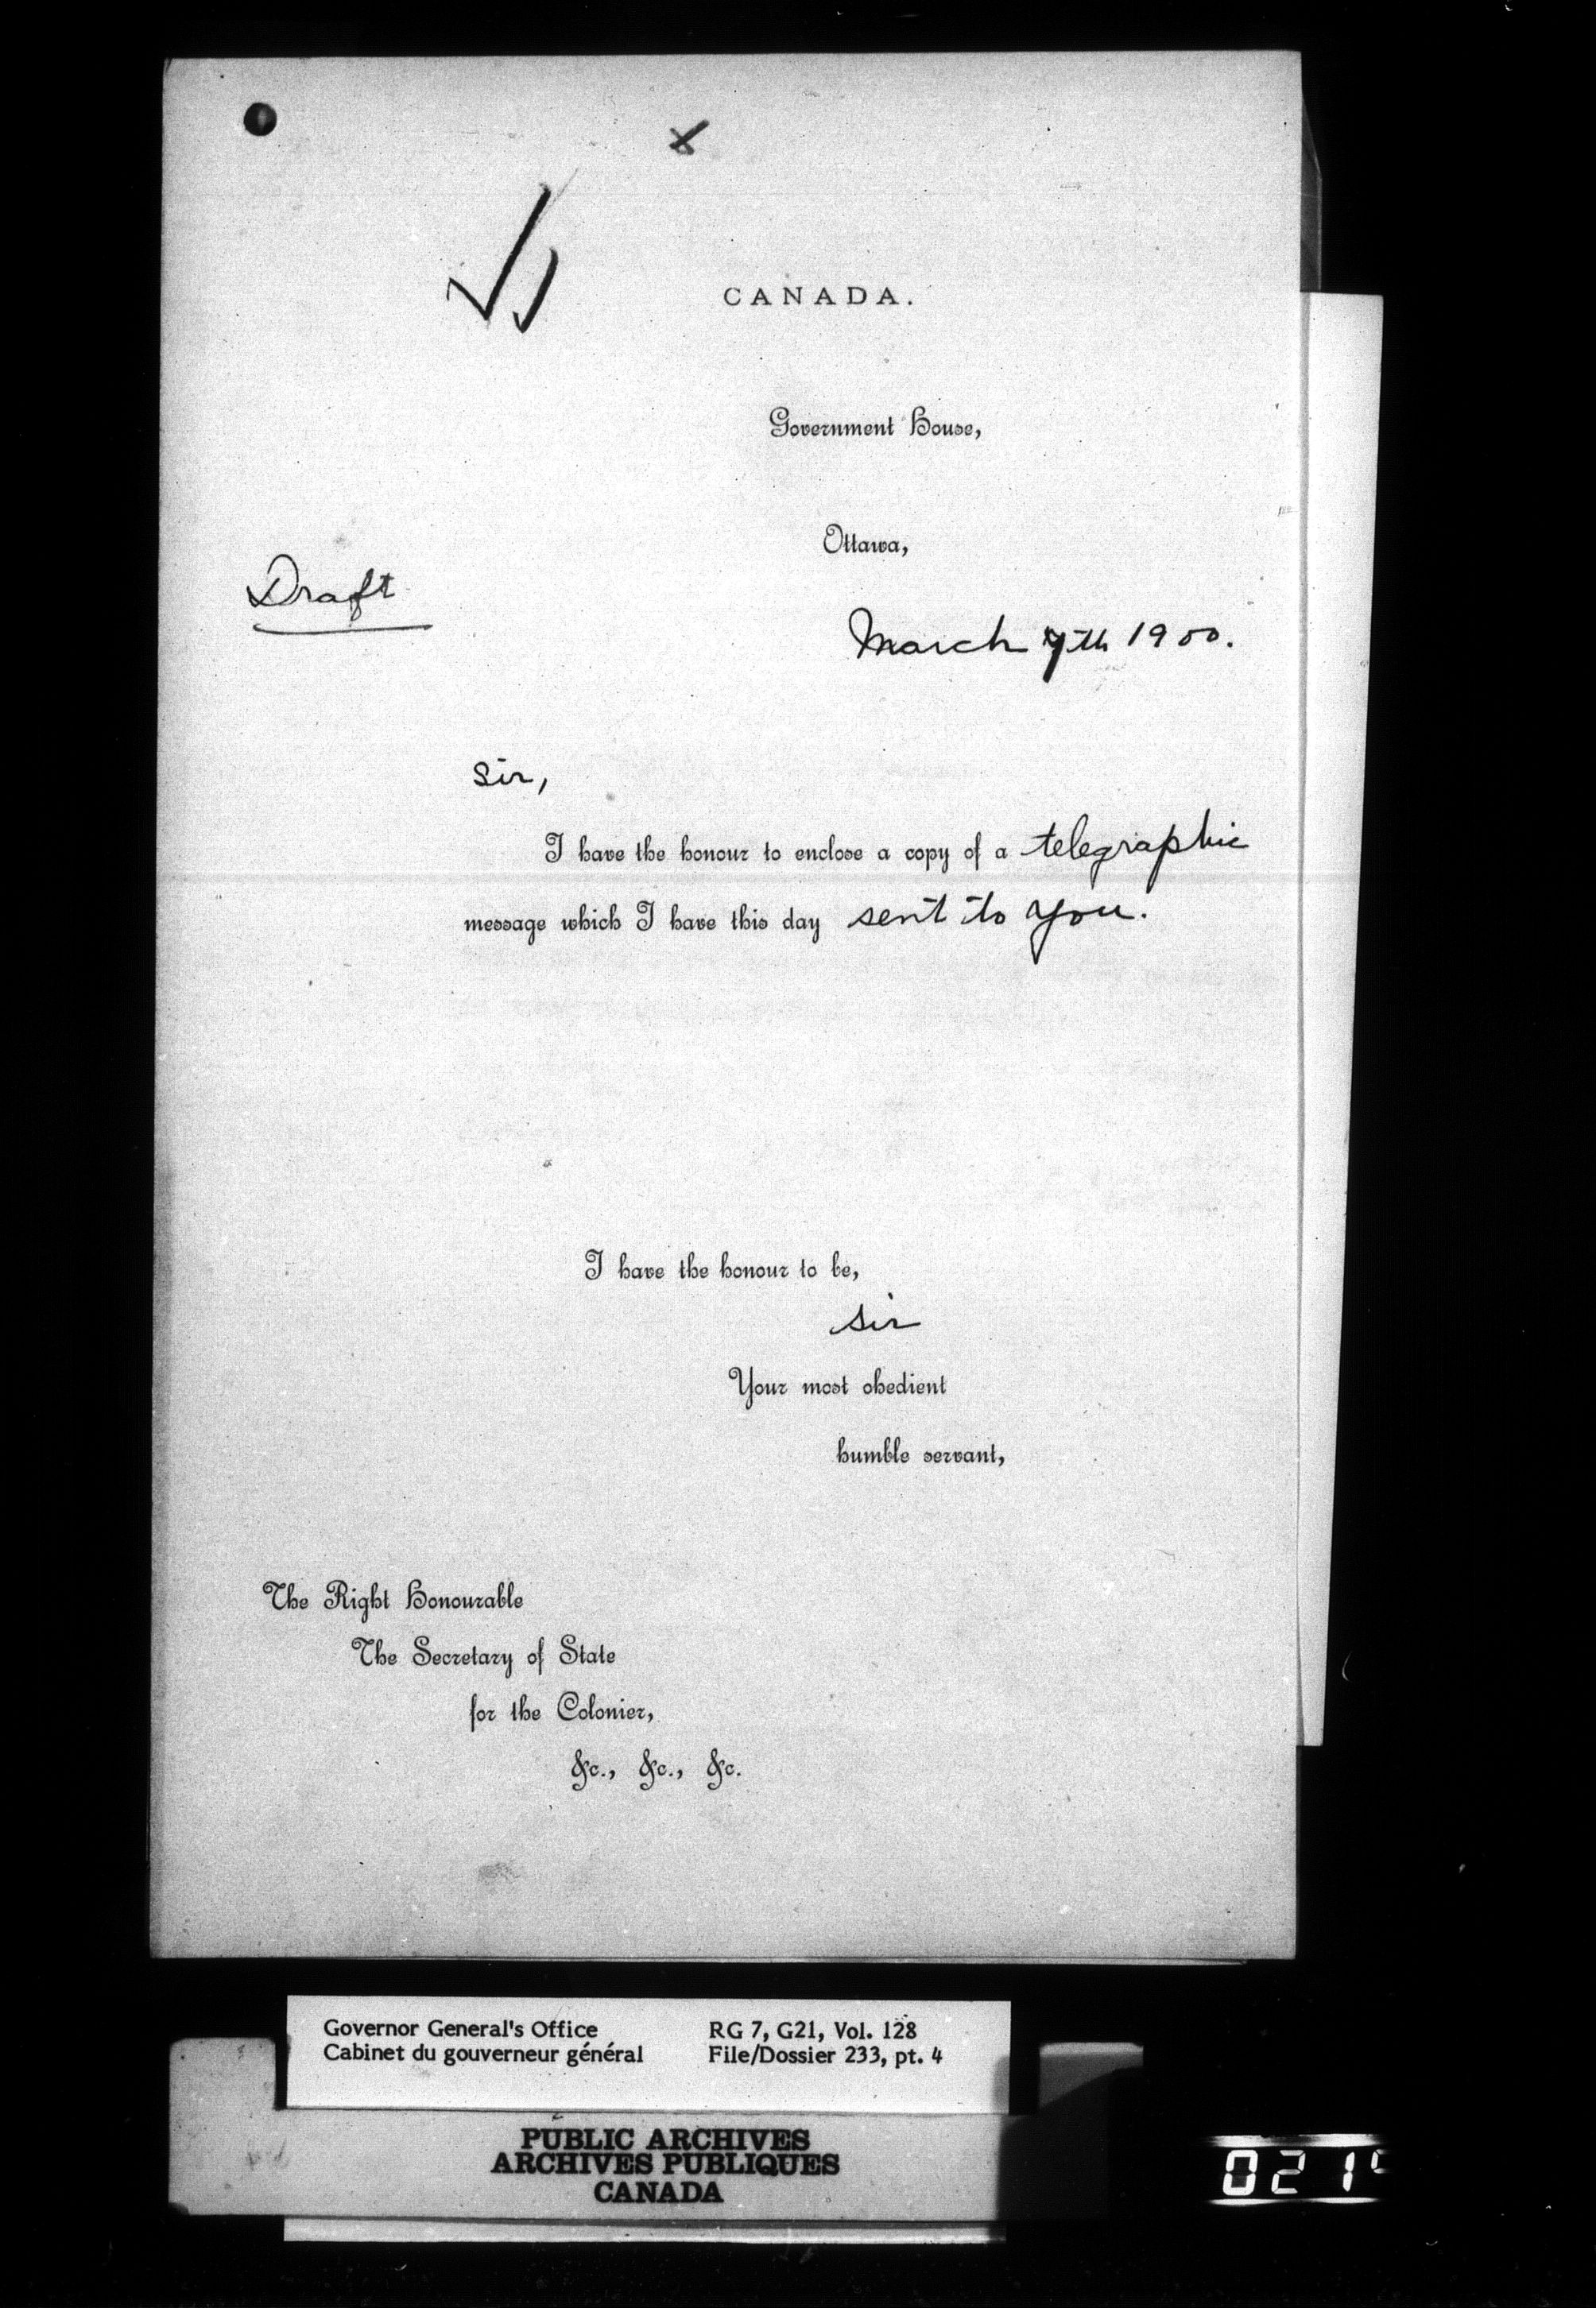 CANADA.
Government House,
Ottawa,
Draft
March 7th 1900.
Sir,
I have the honour to enclose a copy of a telegraphic
message which I have this day sent to you.
I have the honour to be,
Sir
Your most obedient
humble servant,
The Right Honourable
The Secretary of State
for the Colonies,
&c., &c., &c.
Governor General's Office RG 7, G21, Vol. 128
Cabinet du gouverneur général File/Dossier 233, pt. 4
PUBLIC ARCHIVES
ARCHIVES PUBLIQUES
CANADA
021